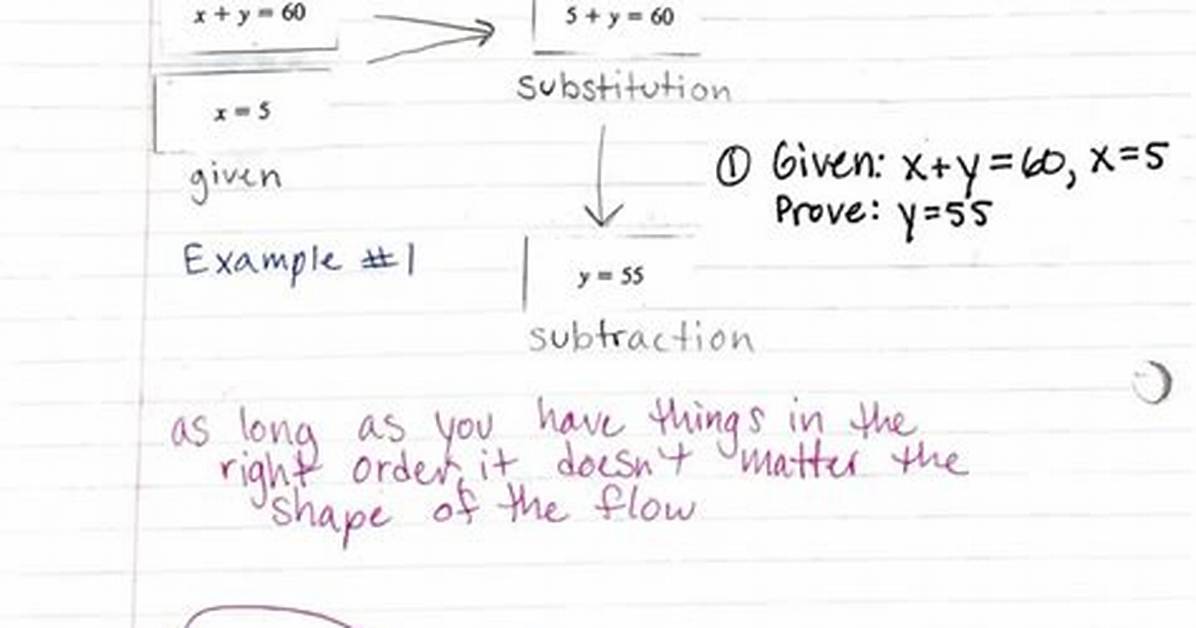 x + y = 60
5 + y = 60
substitution
x = 5
given
① Given: x+y=60, x=5
Prove: y=55
Example #1
y = 55
subtraction
as long as you have things in the
right order, it doesn't matter the
shape of the flow